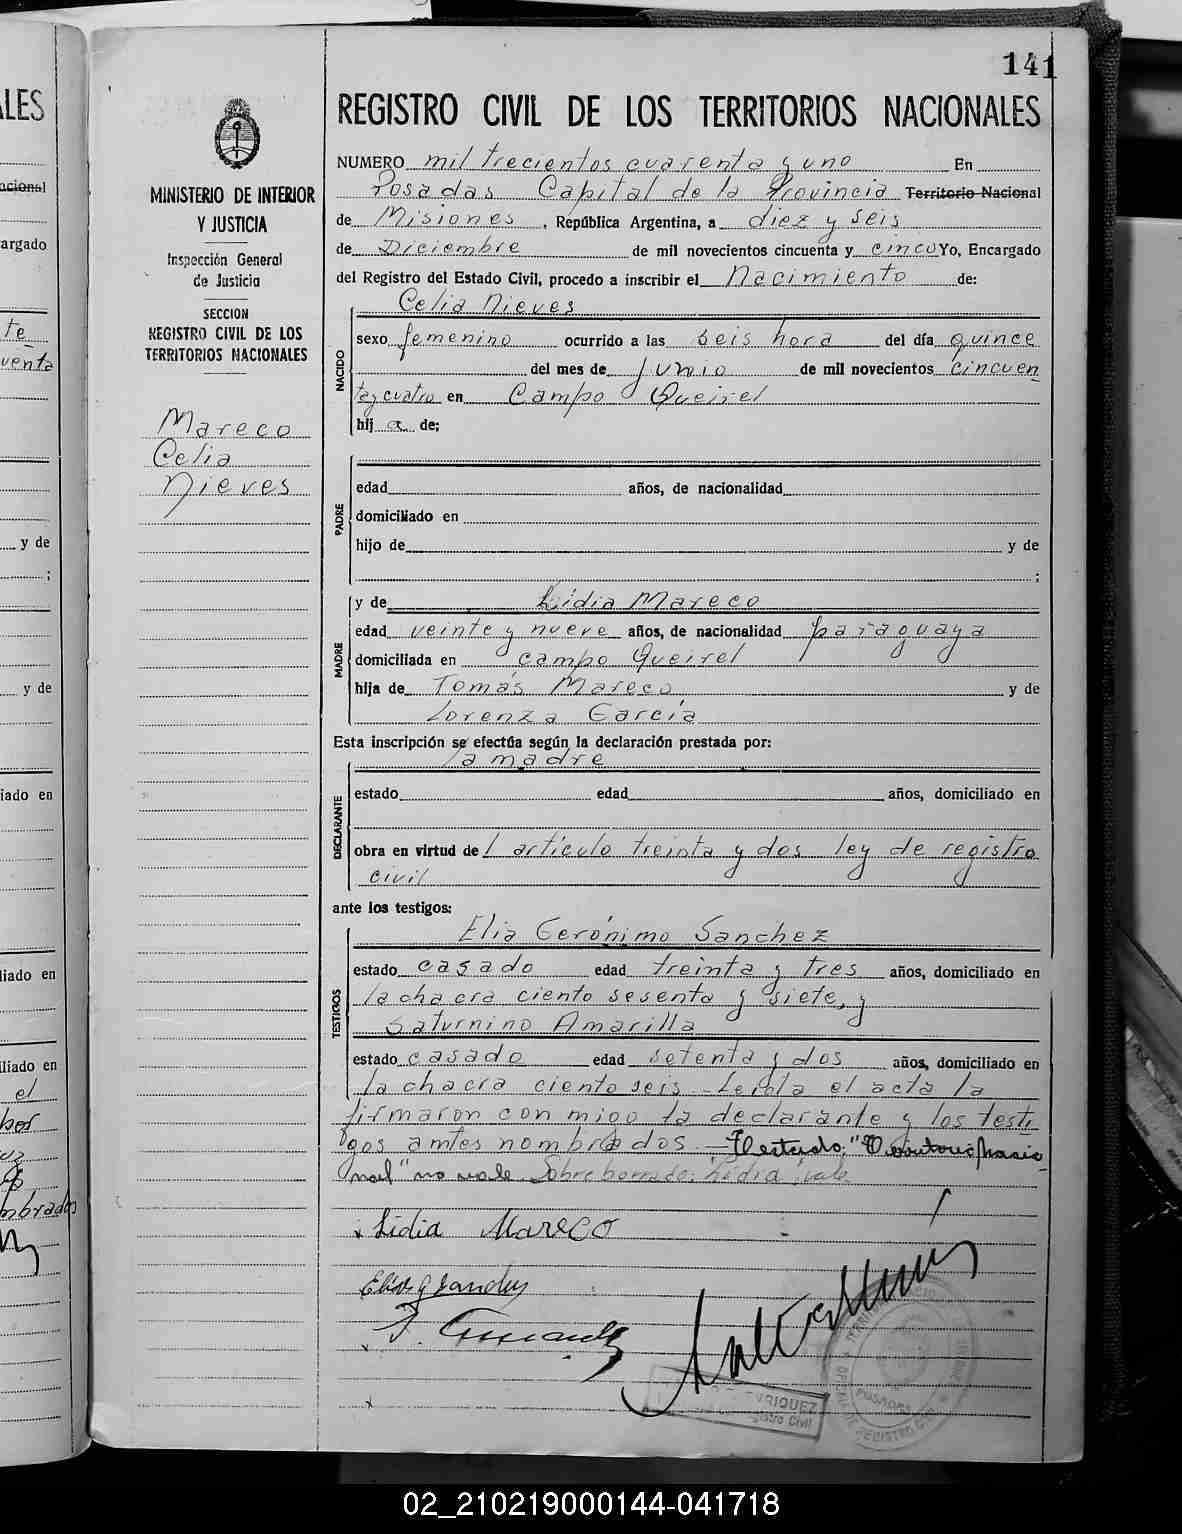 141
REGISTRO CIVIL DE LOS TERRITORIOS NACIONALES
MINISTERIO DE INTERIOR
Y JUSTICIA
Inspección General
de Justicia
SECCION
REGISTRO CIVIL DE LOS
TERRITORIOS NACIONALES
Mareco
Celia
Nieves
NUMERO mil trecientos cuarenta y uno En
Posadas Capital de la Provincia Territorio Nacional
de Misiones, República Argentina, a diez y seis
de Diciembre de mil novecientos cincuenta y cinco Yo, Encargado
del Registro del Estado Civil, procedo a inscribir el Nacimiento de:
Celia Nieves
NACIDO
sexo femenino ocurrido a las seis hora del día quince
del mes de Junio de mil novecientos cincuen-
ta y cuatro en Campo Queirel
hij a de;
PADRE
edad años, de nacionalidad
domiciliado en
hijo de y de
;
y de Lidia Mareco
MADRE
edad veinte y nueve años, de nacionalidad paraguaya
domiciliada en campo Queirel
hija de Tomás Mareco y de
Lorenza García
Esta inscripción se efectúa según la declaración prestada por:
la madre
DECLARANTE
estado edad años, domiciliado en
obra en virtud del artículo treinta y dos ley de registro
civil
ante los testigos:
Elia Gerónimo Sanchez
TESTIGOS
estado casado edad treinta y tres años, domiciliado en
la chacra ciento sesenta y siete, y
Saturnino Amarilla
estado casado edad setenta y dos años, domiciliado en
la chacra ciento seis - Leída el acta la
firmaron con migo la declarante y los testi
gos amtes nombrados. Testado: "Territorio Nacio-
nal" no vale Sobre borrado: Lidia: vale
Lidia Mareco
RIQUEZ
Registro Civil
POSADAS
ALES
acional
argado
te
venta
y de
;
y de
iado en
liado en
iliado en
el
mbrados
02_210219000144-041718